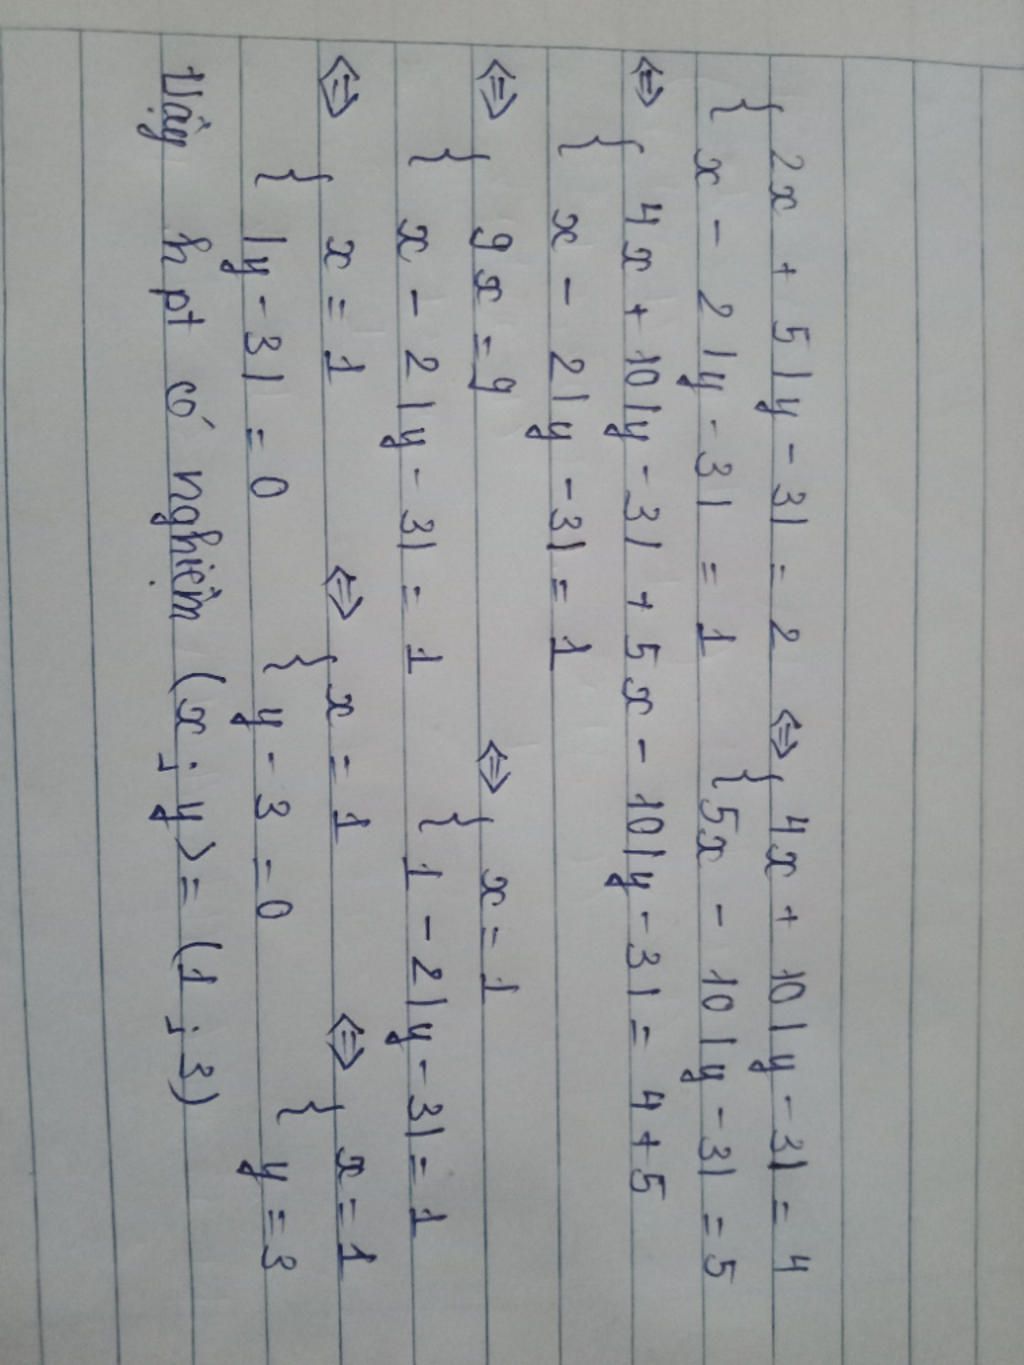 { 2x + 5|y - 3| = 2 ⇔ { 4x + 10|y - 3| = 4
x - 2|y - 3| = 1 5x - 10|y - 3| = 5
⇔ { 4x + 10|y - 3| + 5x - 10|y - 3| = 4 + 5
x - 2|y - 3| = 1
⇔ { 9x = 9 ⇔ { x = 1
x - 2|y - 3| = 1 1 - 2|y - 3| = 1
⇔ { x = 1 ⇔ { x = 1 ⇔ { x = 1
|y - 3| = 0 y - 3 = 0 y = 3
Vậy hpt có nghiệm (x ; y) = (1 ; 3)